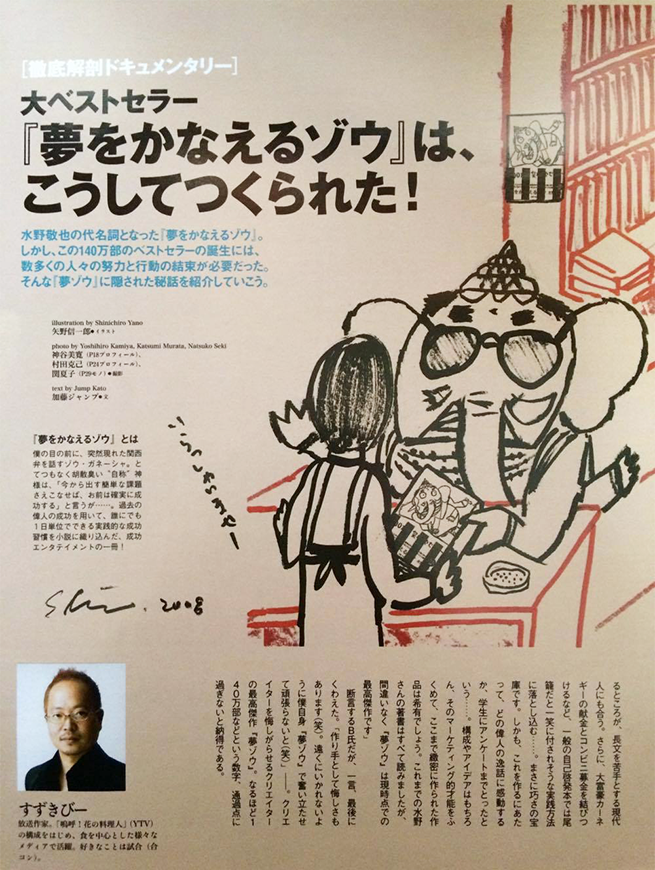 [徹底解剖ドキュメンタリー]
大ベストセラー
『夢をかなえるゾウ』は、
こうしてつくられた!
水野敬也の代名詞となった『夢をかなえるゾウ』。
しかし、この140万部のベストセラーの誕生には、
数多くの人々の努力と行動の結束が必要だった。
そんな『夢ゾウ』に隠された秘話を紹介していこう。
illustration by Shinichiro Yano
矢野信一郎●イラスト
photo by Yoshihiro Kamiya, Katsumi Murata, Natsuko Seki
神谷美寛(P18プロフィール)、
村田克己(P24プロフィール)、
関夏子(P29モノ)●撮影
text by Jump Kato
加藤ジャンプ●文
『夢をかなえるゾウ』とは
僕の目の前に、突然現れた関西
弁を話すゾウ・ガネーシャ。と
てつもなく胡散臭い“自称”神
様は、「今から出す簡単な課題
さえこなせば、お前は確実に成
功する」と言うが……。過去の
偉人の成功を用いて、誰にでも
1日単位でできる実践的な成功
習慣を小説に織り込んだ、成功
エンタテイメントの一冊!
いらっしゃいませー
2008
るところが、長文を苦手とする現代
人にも合う。さらに、大富豪カーネ
ギーの献金とコンビニ募金を結びつ
けるなど、一般の自己啓発本では尾
籠だと一笑に付されそうな実践方法
に落とし込む……。まさに巧さの宝
庫です。しかも、これを作るにあた
って、どの偉人の逸話に感動する
か、学生にアンケートまでとったと
いう……。構成やアイデアはもちろ
ん、そのマーケティング的才能をふ
くめて、ここまで緻密に作られた作
品は希有でしょう。これまでの水野
さんの著書はすべて読みましたが、
間違いなく『夢ゾウ』は現時点での
最高傑作です」
断言するB氏だが、一言、最後に
くわえた。「作り手として悔しさも
あります(笑)。遠くにいかれないよ
うに僕自身『夢ゾウ』で奮い立たせ
て頑張らないと(笑)」――。クリエ
イターを悔しがらせるクリエイター
の最高傑作『夢ゾウ』。なるほど1
40万部などという数字、通過点に
過ぎないと納得である。
すずきびー
放送作家。「嗚呼!花の料理人」(YTV)
の構成をはじめ、食を中心とした様々な
メディアで活躍。好きなことは試合(合
コン)。